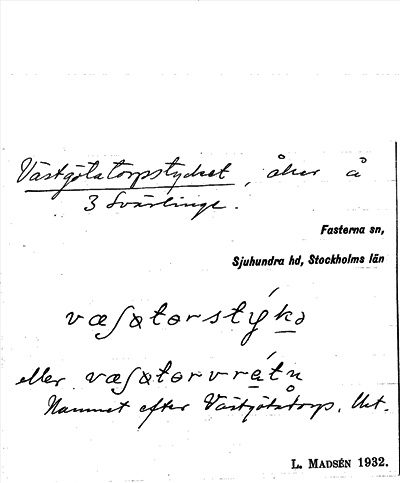 Västgötatorpstycket, åker å
3 Svärlinge.
Fasterna sn,
Sjuhundra hd, Stockholms län
væʃɷtɵrstýkə
eller væʃɷtɵrvrétn
Namnet efter Västgötatorp.
L. MADSÉN 1932.